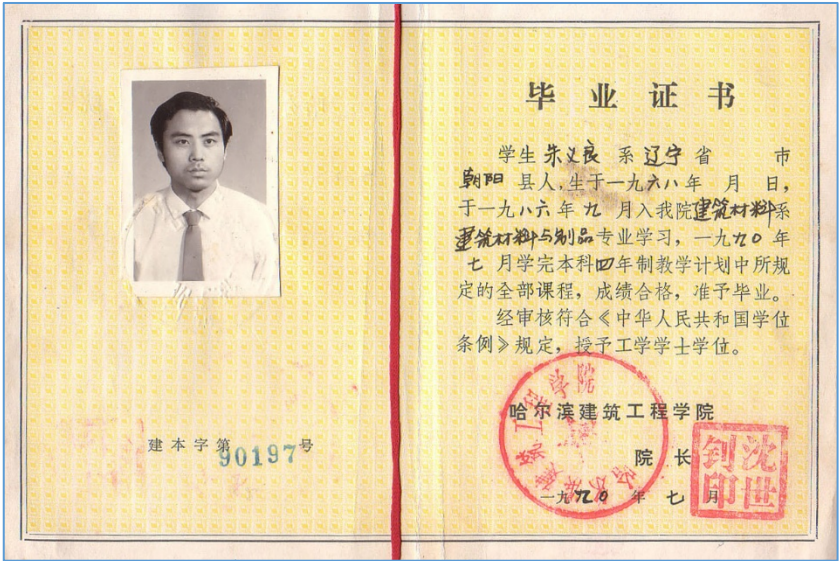 建本字第90197号
毕业证书
学生朱义良系辽宁省 市
朝阳县人,生于一九六八年 月 日,
于一九八六年九月入我院建筑材料系
建筑材料与制品专业学习,一九九〇年
七月学完本科四年制教学计划中所规
定的全部课程,成绩合格,准予毕业。
经审核符合《中华人民共和国学位
条例》规定,授予工学学士学位。
哈尔滨建筑工程学院
院长
沈世钊印
一九九〇年七月
哈尔滨建筑工程学院